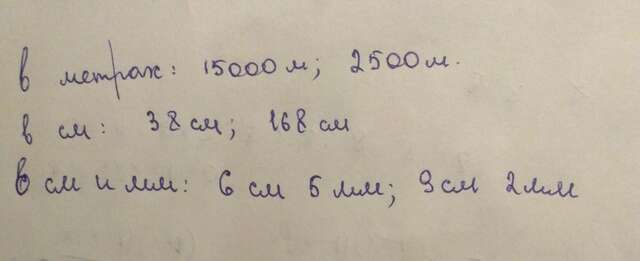 в метрах: 15000 м; 2500 м.
в см: 38 см; 168 см
в см и мм: 6 см 5 мм; 9 см 2 мм